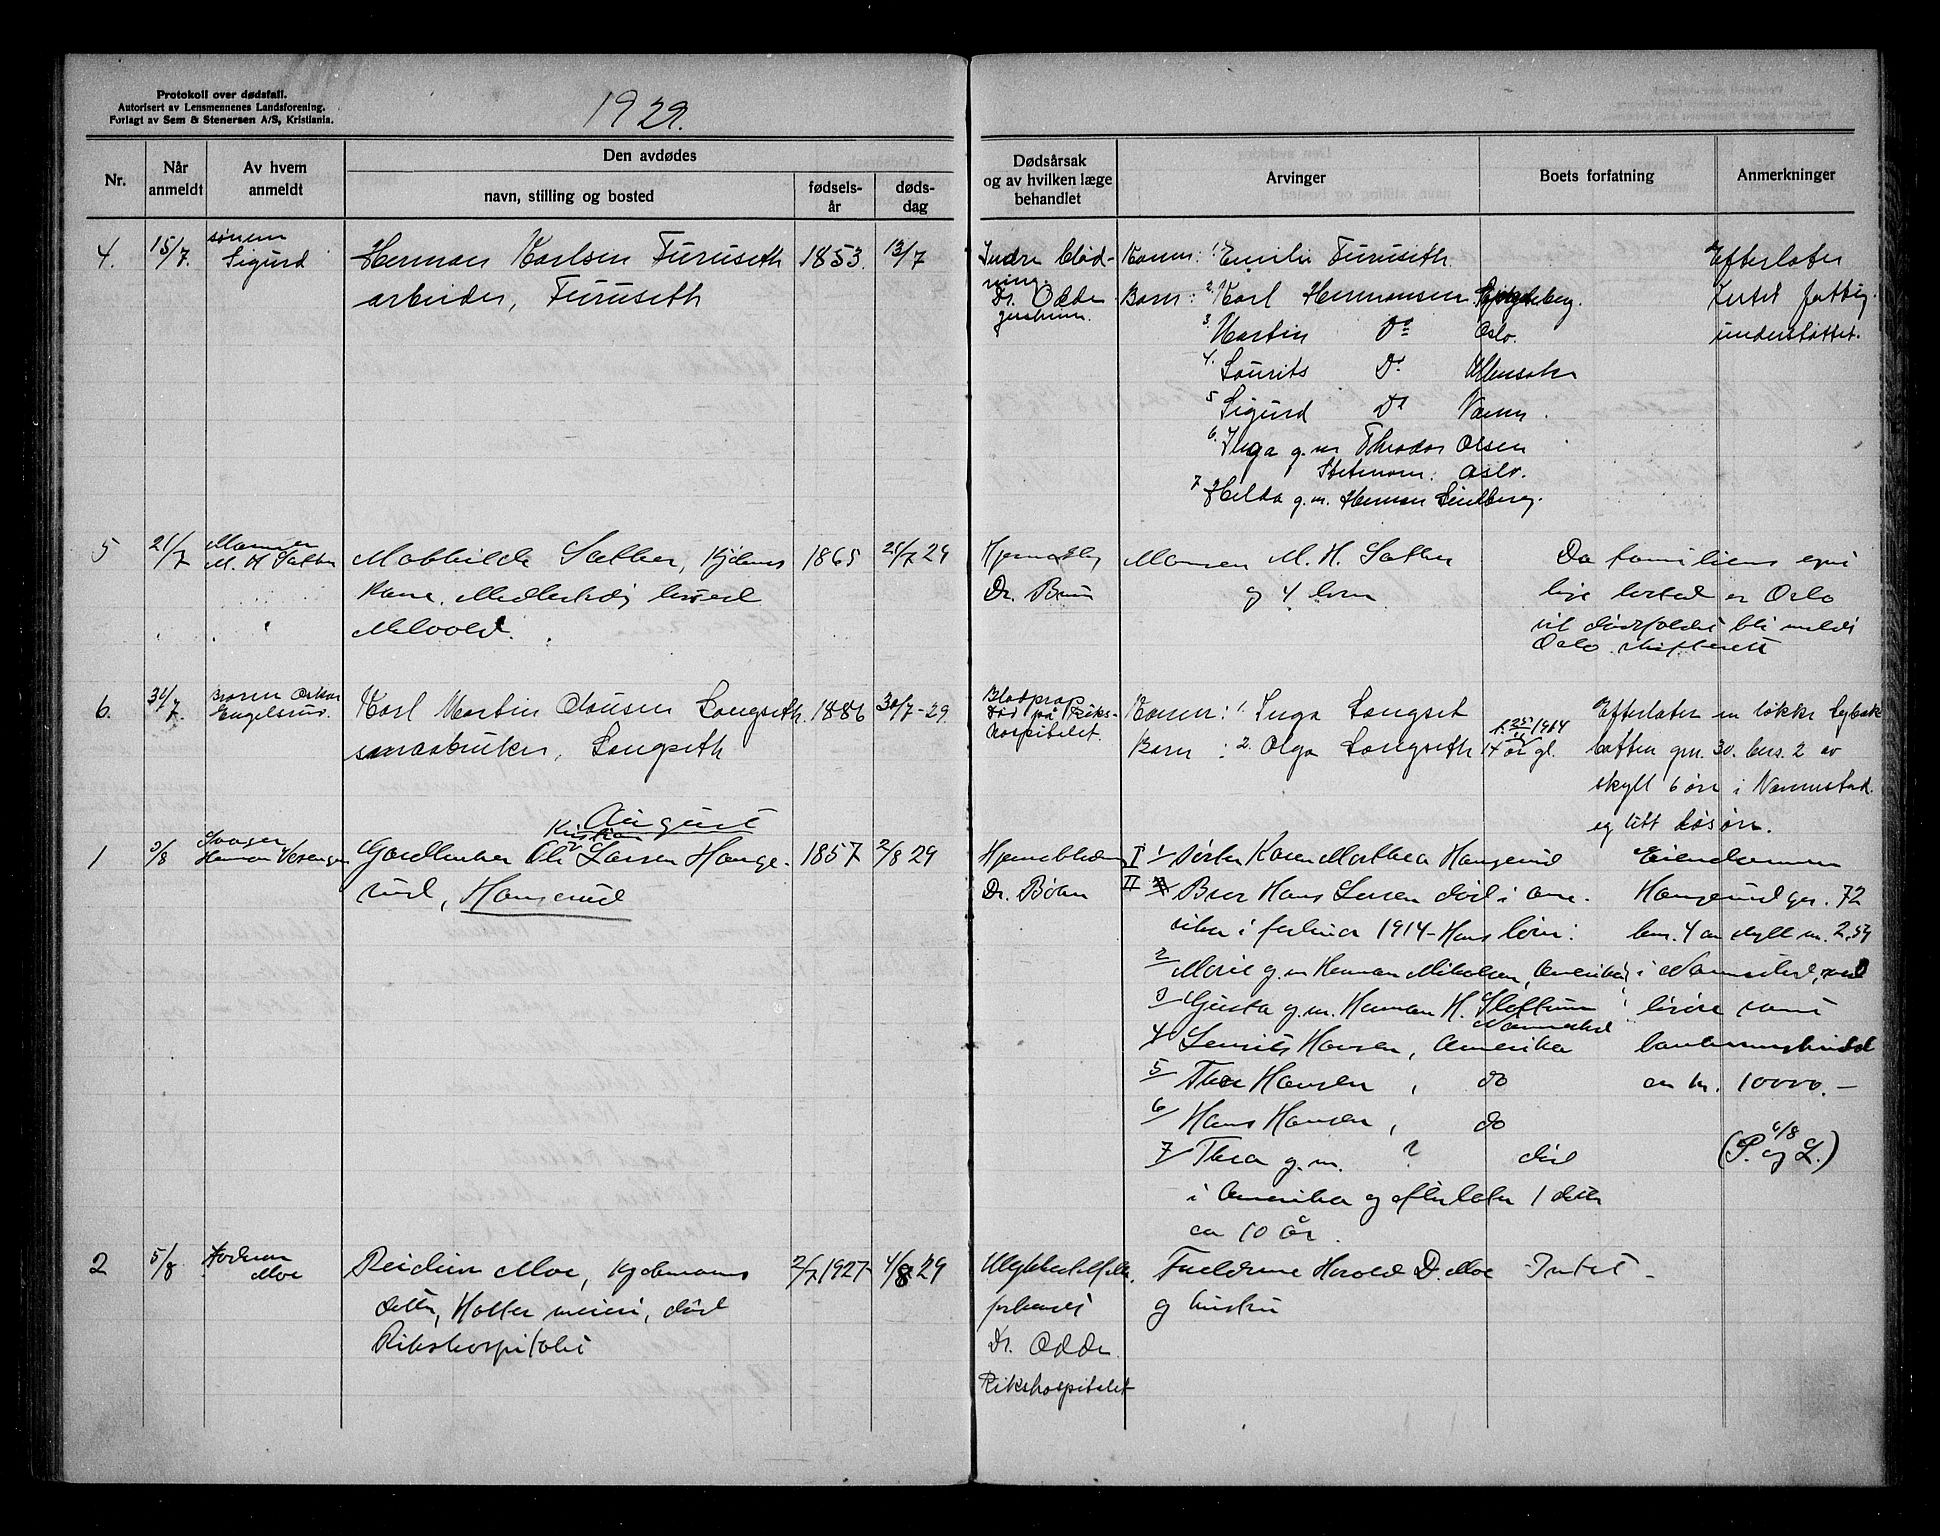 Protokoll over dødsfall.
Autorisert av Lensmennenes Landsforening.
Forlagt av Sem & Stenersen A/S, Kristiania.
1929.
Nr.
Når anmeldt
Av hvem anmeldt
Den avdødes
navn, stilling og bosted
fødsels-år
døds-dag
Dødsårsak og av hvilken læge behandlet
Arvinger
Boets forfatning
Anmerkninger
4. 15/7. sønnen Sigurd
Herman Karlsen Furuseth 1853. 13/7
arbeider, Furuseth
Indre blød-
ning
Dr. Odde
Konen: 1. Emilie Furuseth.
Barn: 2. Karl Hermansen
3. Martin Do Oslo.
4. Lourits Do Ullensaker
5. Sigurd Do Nannes.
6. Inga g.m Theodor Olsen
Oslo.
7. Helda g.m. Herman Lindberg.
Efterlater
Intet fattig
understøttet.
5 21/7 Mannen M. H. Sæther
Mathilde Sæther, 1865 21/7 29
Kone. Midlertidig bosted
Dr. Brun
Mannen M. H. Sæther
og 4 barn
Da familiens egent
lige bosted er Oslo
vil dødsfaldet bli meldt
Oslo skifterett
6. 31/7. Broren Oskar Engelsrud.
Karl Martin Clausen Longseth 1886 30/7-29.
småbruker, Longseth
Blodprop
Død på Riks-
hospitalet.
Konen: 1. Inga Longset
Barn: 2. Olga Longseth 14 år gl.
f. 25/4 1914
Efterlater en løkke
gnr. 30. brs. 2 av
skyll 6 øre i Nannestad
og litt løsøre.
August
1 3/8 Svoger Herman
Kristian
Gardbruker Ole Larsen Hauge- 1857 2/8 29
rud, Haugerud
Hjerneblødning
Dr. Bøhn
I 1/ Søster Karen Marthea Haugerud
II Bror Hans Larsen død i Ame
rika i februar 1914 - Hans barn:
2/ Marie g.m Herman Mikalsen, Amerika
3/ Gusta g.m. Herman H. Slottum
Nannestad
4/ Lauritz Hansen, Amerika
5/ Thea Hansen, do
6/ Hans Hansen, do
7/ Thea g.m. ? død
i Amerika og efterlater 1 datter
ca 10 år.
Eiendommen
Haugerud gnr. 72
brs. 4 av skyll m. 2,54
i Nannestad, med
løsøre samt
bankinnskudd
ca kr. 10000.-
6/8
(P. og L.)
2 5/8 Moe
Reidun Moe, Kjøbmanns 2/7 1927 4/8 29
datter, Holter meieri, død
Rikshospitalet
Ulykkestilfelle.
Dr. Odde.
Rikshospitalet
Foreldrene Harald D. Moe
og hustru
Intet -